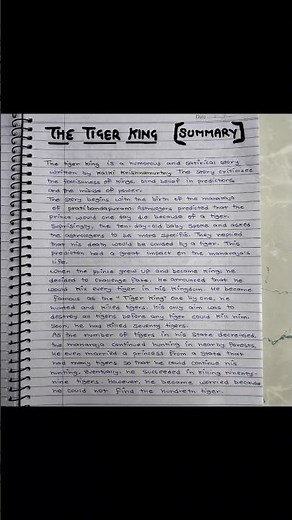 THE TIGER KING [SUMMARY]
The tiger king is a humorous and satirical story
written by Kalki Krishnamurthy. The story criticises
the foolishness of kings, blind belief in predictions
and the misuse of power.
The story begins with the birth of the maharaja
of pratibandapuram. Astrologers predicted that the
prince would one day die because of a tiger.
Surprisingly, the ten-day-old baby spoke and asked
the astrologers to be more specific. They replied
that his death would be caused by a tiger. This
prediction had a great impact on the maharaja's
life.
When the prince grew up and became king, he
decided to change fate. He announced that he
would kill every tiger in his kingdom. He became
famous as the "Tiger King" one by one, he
hunted and killed tigers. His only aim was to
destroy all tigers before any tiger could kill him.
Soon he had killed seventy tigers.
As the number of tigers in his state decreased,
the maharaja continued hunting in nearby forests.
He even married a princess from a state that
had many tigers so that he could continue his
hunting. Eventually, he succeeded in killing ninety-
nine tigers. However, he became worried because
he could not find the hundredth tiger.